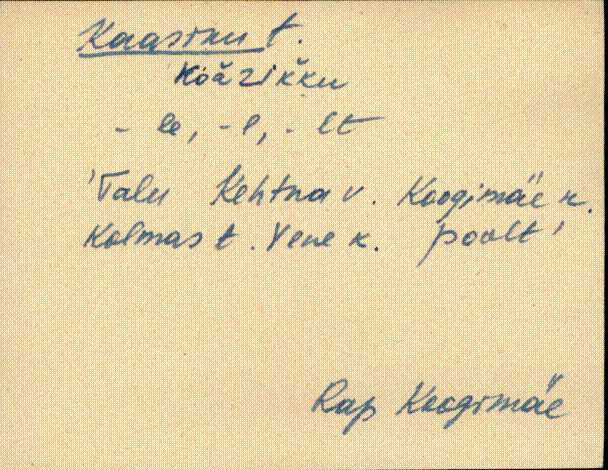 Kaasiku t.
koăzikku
- le, - l, - lt
'Talu Kehtna v. Koogimäe k.
Kolmas t. Vene k. poolt'
Rap Koogimäe